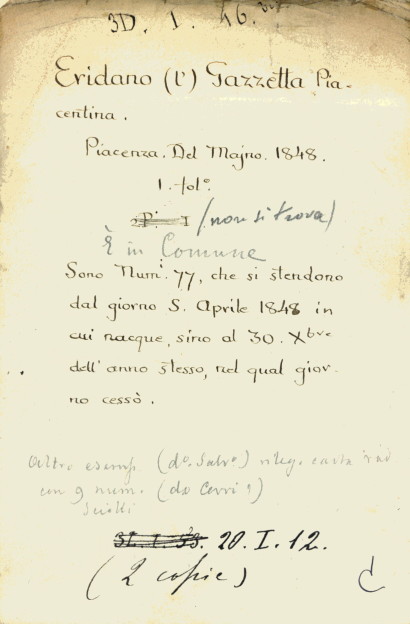 3D. I. 46. bis
Eridano (l') Gazzetta Pia-
centina.
Piacenza. Del Majno. 1848.
1. fol°.
(non si trova)
È in Comune
Sono Num.i 77, che si stendono
dal giorno 5. Aprile 1848 in
cui nacque, sino al 30. Xbre
dell' anno stesso, nel qual gior-
no cessò.
Altro esemp. (d°. Salv°) rileg. carta
con 9 num. (da Cerri)
3L. I. 33. 20. I. 12.
(2 copie)
C